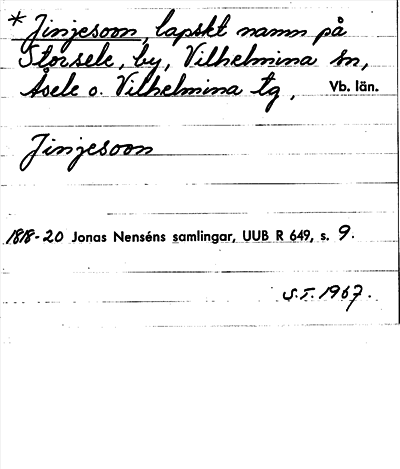 * Jinjesoon, lapskt namn på
Storsele, by, Vilhelmina sn,
Åsele o. Vilhelmina tg, Vb. län.
Jinjesoon
1818-20 Jonas Nenséns samlingar, UUB R 649, s. 9.
S.T. 1967.